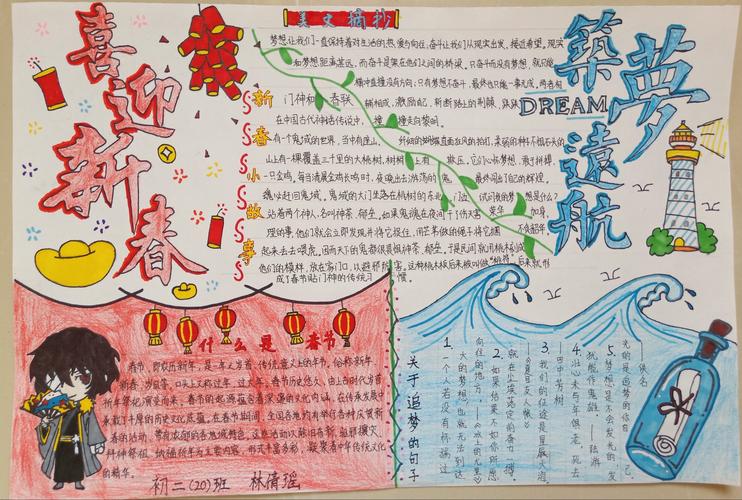 喜迎新春
美文摘抄
築夢遠航
DREAM
梦想让我们一直保持着对生活的热爱与向往,奋斗让我们从现实出发,接近希望。现实
和梦想距离甚远,而奋斗是架在他们之间的桥梁。只奋斗而没有梦想,就只能
横冲直撞没有方向;只有梦想不奋斗,最终也只能一事无成。两者相
辅相成,激励起
撞走向黎明。
新春小故事
门神和 春联
在中国古代神话传说中,
有一个鬼域的世界,当中有座山,
山上有一棵覆盖三千里的大桃树,树梢上有
一只金鸡,每当清晨金鸡长鸣时,夜晚出去游荡的鬼
魂必赶回鬼域。鬼域的大门坐落在桃树的东北,门边
站着两个神人,名叫神荼、郁垒。如果鬼魂在夜间干了伤天害
理的事,他们就会立即发现并将它捉住,用芒苇做的绳子将它捆
起来去去喂虎。因而天下的鬼都很畏惧神荼、郁垒。于是民间就用桃木刻成
他们的模样,放在家门口,以避邪防害。这种桃木板后来被叫做“桃符”,后来就形
成了春节贴门神的传统习惯。
什么是春节
春节,即农历新年,是一年之岁首、传统意义上的年节。俗称新年、
新春、岁旦等,口头上又称过年、过大年。春节历史悠久,由上古时代岁首
祈年祭祀演变而来。春节的起源蕴含着深邃的文化内涵,在传承发展中
承载了丰厚的历史文化底蕴。在春节期间,全国各地均有举行各种庆贺新
春的活动,带有浓郁的各地域特色。这些活动以除旧布新、驱邪攘灾、
拜神祭祖、纳福祈年为主要内容,形式丰富多彩,凝聚着中华传统文化
的精华。
初二(20)班 林倩瑶
关于追梦的句子
1. 一个人若没有怀揣过
大的梦想,也就无法到达
向往的地方。
2. 如果结果不如你所愿,
就在尘埃落定前奋力一搏。
——《夏目友人帐》
3. 我们的征途是星辰大海
——田中芳树
4. 壮心未与年俱老,死去
犹能作鬼雄。——陆游
5. 梦想是不会发光的,发
光的是追梦的你自己。
——佚名